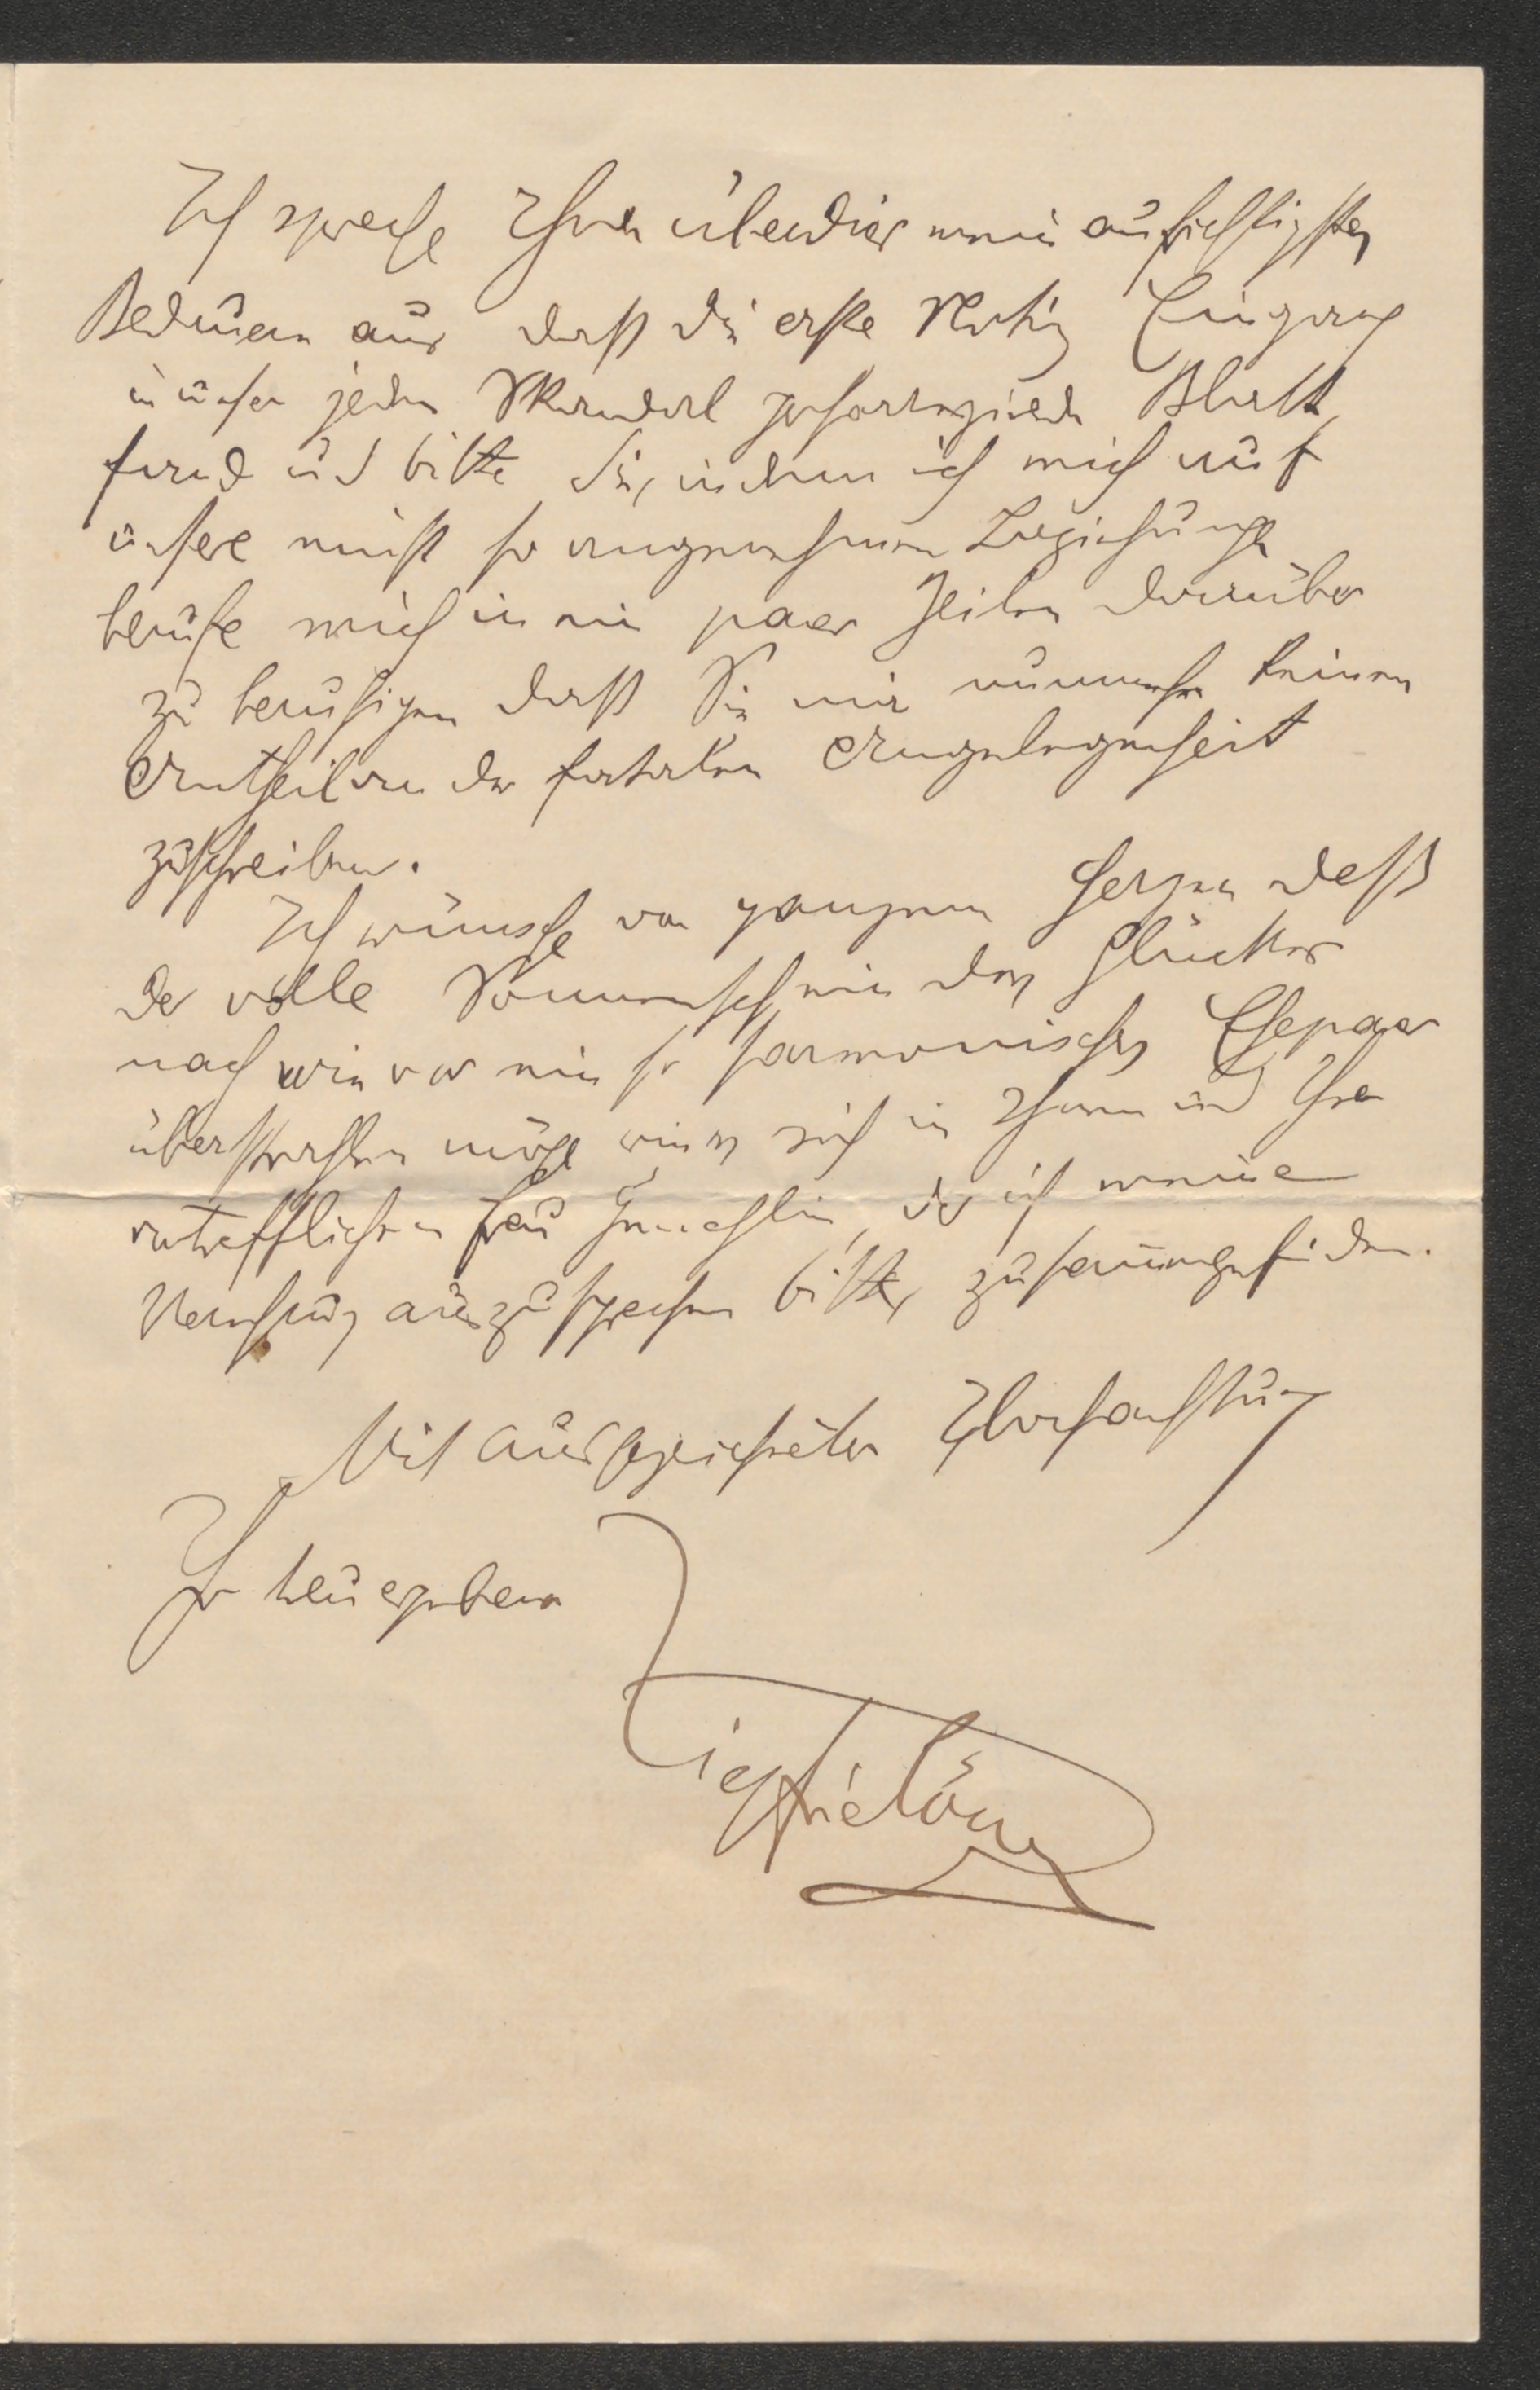 Ich spreche Ihnen überdies mein aufrichtigstes
Bedauern aus daß die erste Notiz Eingang
in unser jeden Skandal perhorreszirende Blatt
fand und bitte Sie, indem ich mich auf
unsere meist so angenehmen Beziehungen
berufe mich in ein paar Zeilen darüber
zu beruhigen daß Sie mir nunmehr keinen
Antheil an der fatalen Angelegenheit
zuschreiben.
Ich wünsche von ganzem Herzen daß
der volle Sonnenschein des Glückes
nach wie vor ein so harmonisches Ehepaar
überstrahlen möge wie es sich in Ihnen und Ihrer
vortrefflichen Frau Gemahlin, der ich meine
Verehrung auszusprechen bitte, zusammengefunden.
Mit ausgezeichneter Hochachtung
Ihr treu ergebener